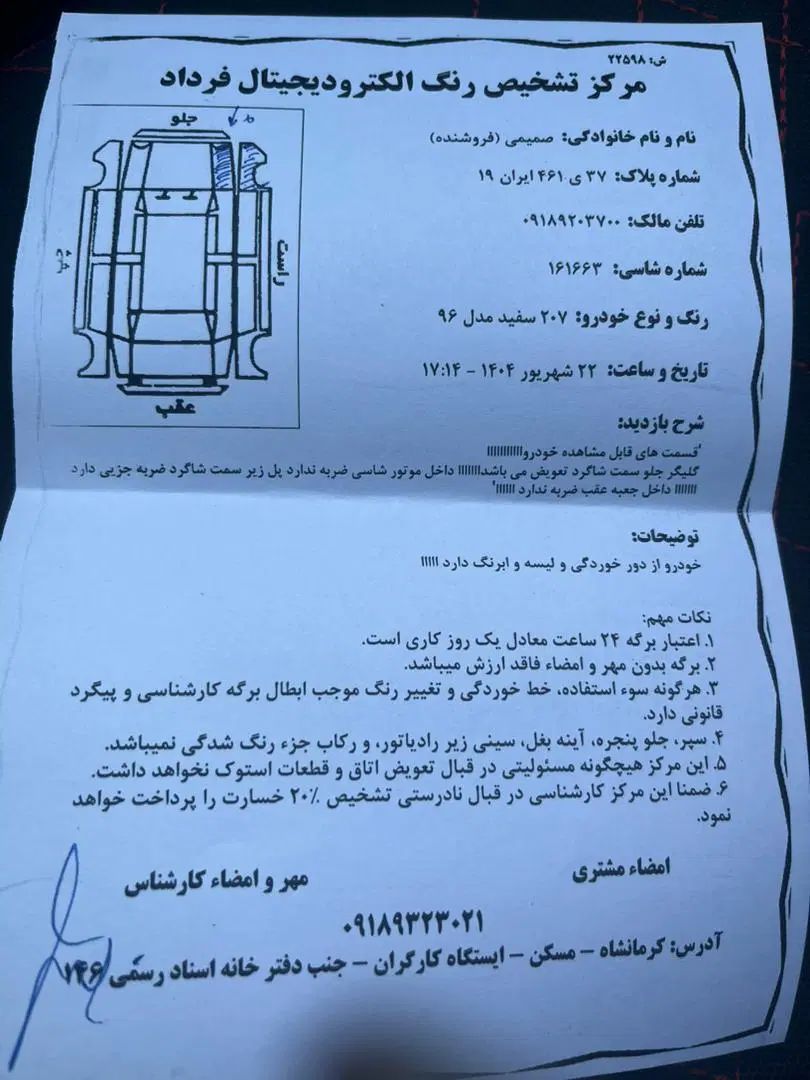 ش: ۲۲۵۹۸
مرکز تشخیص رنگ الکترودیجیتال فرداد
جلو
راست
چپ
عقب
نام و نام خانوادگی: صمیمی (فروشنده)
شماره پلاک: ۳۷ ی ۴۶۱ ایران ۱۹
تلفن مالک: ۰۹۱۸۹۲۰۳۷۰۰
شماره شاسی: ۱۶۱۶۶۳
رنگ و نوع خودرو: ۲۰۷ سفید مدل ۹۶
تاریخ و ساعت: ۲۲ شهریور ۱۴۰۴ - ۱۷:۱۴
شرح بازدید:
'قسمت های قابل مشاهده خودرو||||||||||
گلیگر جلو سمت شاگرد تعویض می باشد||||||| داخل موتور شاسی ضربه ندارد پل زیر سمت شاگرد ضربه جزیی دارد
||||||| داخل جعبه عقب ضربه ندارد ||||||'
توضیحات:
خودرو از دور خوردگی و لیسه و ابرنگ دارد |||||
نکات مهم:
۱. اعتبار برگه ۲۴ ساعت معادل یک روز کاری است.
۲. برگه بدون مهر و امضاء فاقد ارزش میباشد.
۳. هرگونه سوء استفاده، خط خوردگی و تغییر رنگ موجب ابطال برگه کارشناسی و پیگرد
قانونی دارد.
۴. سپر، جلو پنجره، آینه بغل، سینی زیر رادیاتور، و رکاب جزء رنگ شدگی نمیباشد.
۵. این مرکز هیچگونه مسئولیتی در قبال تعویض اتاق و قطعات استوک نخواهد داشت.
۶. ضمنا این مرکز کارشناسی در قبال نادرستی تشخیص ۲۰٪ خسارت را پرداخت خواهد
نمود.
امضاء مشتری
مهر و امضاء کارشناس
۰۹۱۸۹۳۲۳۰۲۱
آدرس: کرمانشاه - مسکن - ایستگاه کارگران - جنب دفتر خانه اسناد رسمی ۱۴۶